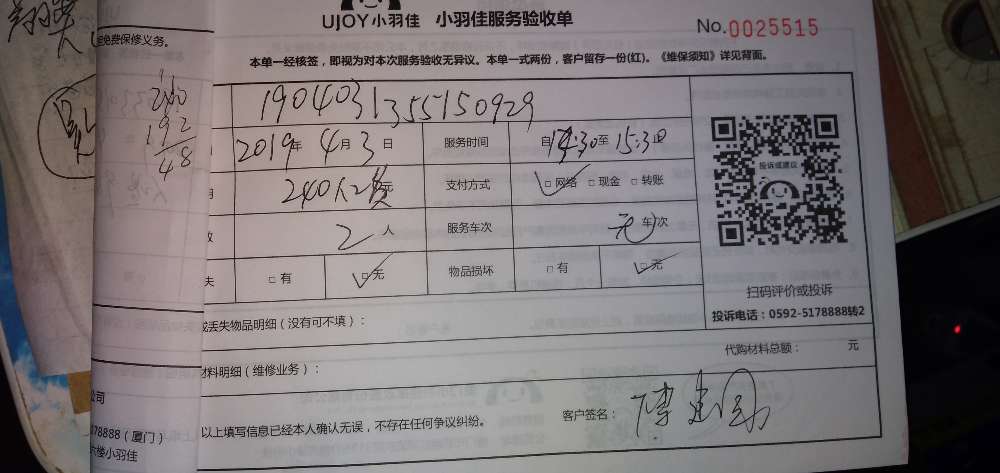 UJOY小羽佳 小羽佳服务验收单
No.0025515
免费保修义务。
本单一经核签，即视为对本次服务验收无异议。本单一式两份，客户留存一份(红)。《维保须知》详见背面。
240
192
48
1904031355150929
2019年4月3日 服务时间 自14:30至15:30
240人工费元 支付方式 □网络 □现金 □转账
2人 服务车次 无车/次
□有 □无 物品损坏 □有 □无
投诉或建议
扫码评价或投诉
投诉电话：0592-5178888转2
或丢失物品明细（没有可不填）：
代购材料总额： 元
材料明细（维修业务）：
公司
78888（厦门）
小羽佳
以上填写信息已经本人确认无误，不存在任何争议纠纷。
客户签名：